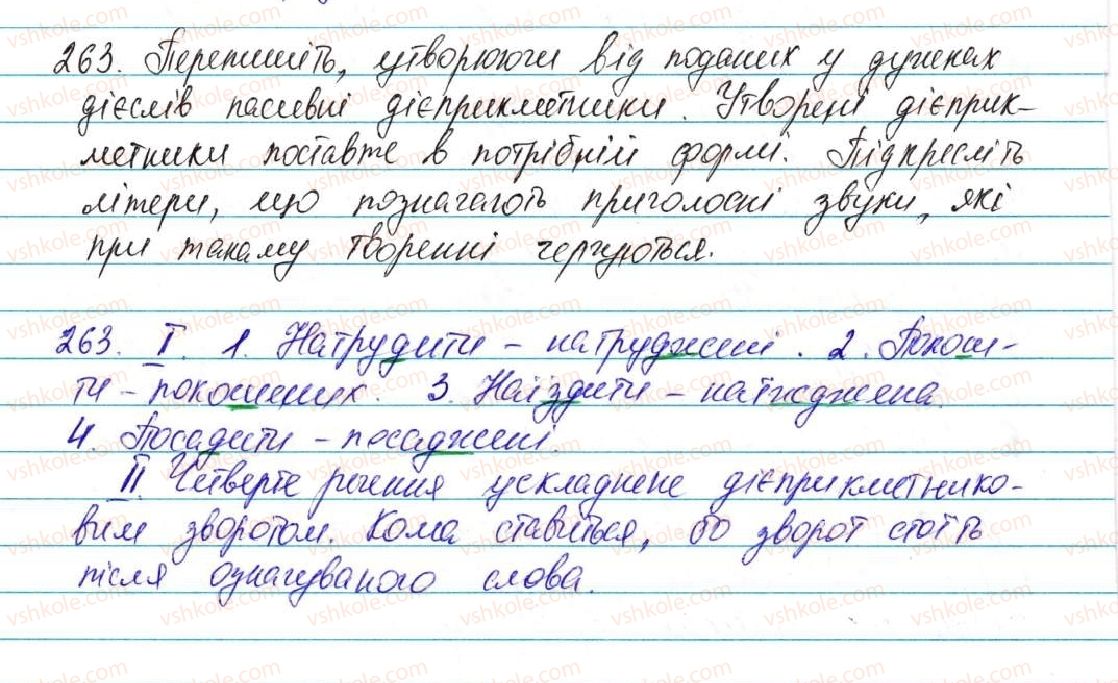 263. Перепишіть, утворюючи від поданих у дужках
дієслів пасивні дієприкметники. Утворені дієприк-
метники поставте в потрібній формі. Підкресліть
літери, що позначають приголосні звуки, які
при такому творенні чергуються.
263. I. 1. Натрудити - натруджені. 2. Покоси-
ти - покошених. 3. Наїздити - наїжджена.
4. Посадити - посаджені.
II. Четверте речення ускладнене дієприкметнико-
вим зворотом. Кома ставиться, бо зворот стоїть
після означуваного слова.